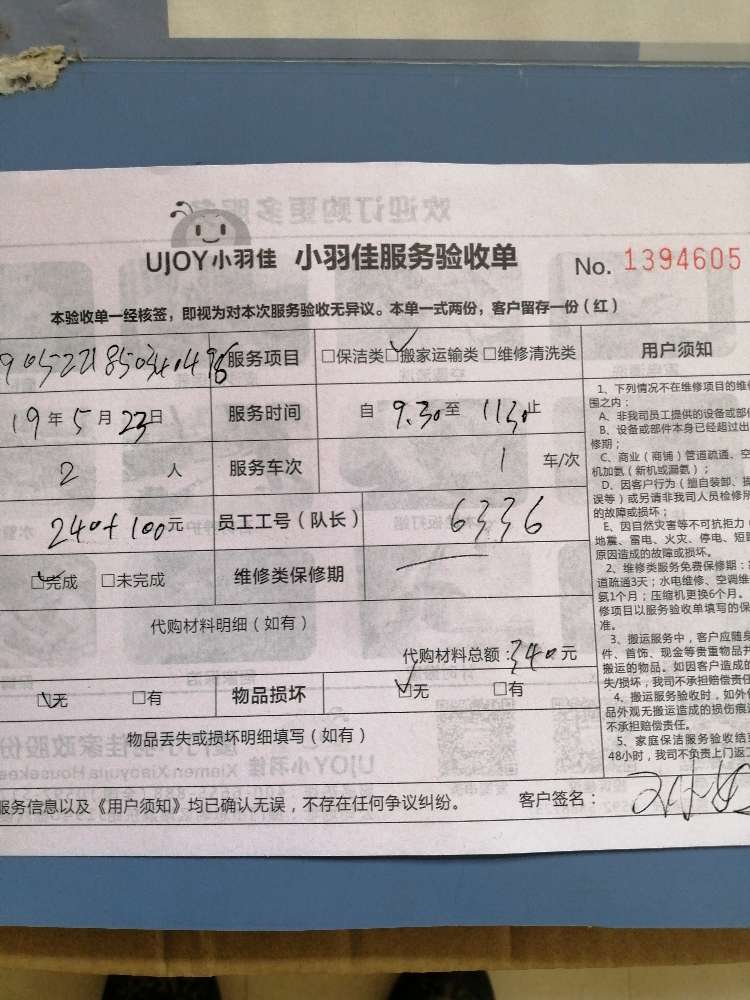 UJOY小羽佳 小羽佳服务验收单 No. 1394605
本验收单一经核签,即视为对本次服务验收无异议。本单一式两份,客户留存一份(红)
服务项目 □保洁类 ☑搬家运输类 □维修清洗类
19年5月23日 服务时间 自 9.30至 1130止
2 人 服务车次 1 车/次
240+100元 员工工号(队长) 6336
☑完成 □未完成 维修类保修期
代购材料明细(如有)
代购材料总额:340元
☑无 □有 物品损坏 ☑无 □有
物品丢失或损坏明细填写(如有)
服务信息以及《用户须知》均已确认无误,不存在任何争议纠纷。 客户签名:
用户须知
1、下列情况不在维修项目的维
围之内:
A、非我司员工提供的设备或部
B、设备或部件本身已经超过出
修期;
C、商业(商铺)管道疏通、空
机加氨(新机或漏氨);
D、因客户行为(擅自装卸、
误等)或另请非我司人员检修所
的故障或损坏;
E、因自然灾害等不可抗拒力(
地震、雷电、火灾、停电、短
原因造成的故障或损坏。
2、维修类服务免费保修期:
道疏通3天;水电维修、空调维
氨1个月;压缩机更换6个月。
修项目以服务验收单填写的保
准。
3、搬运服务中,客户应随身
件、首饰、现金等贵重物品
搬运的物品。如因客户造成的
失/损坏,我司不承担赔偿责任
4、搬运服务验收时,如外
品外观无搬运造成的损伤痕
不承担赔偿责任。
5、家庭保洁服务验收结
48小时,我司不负责上门返